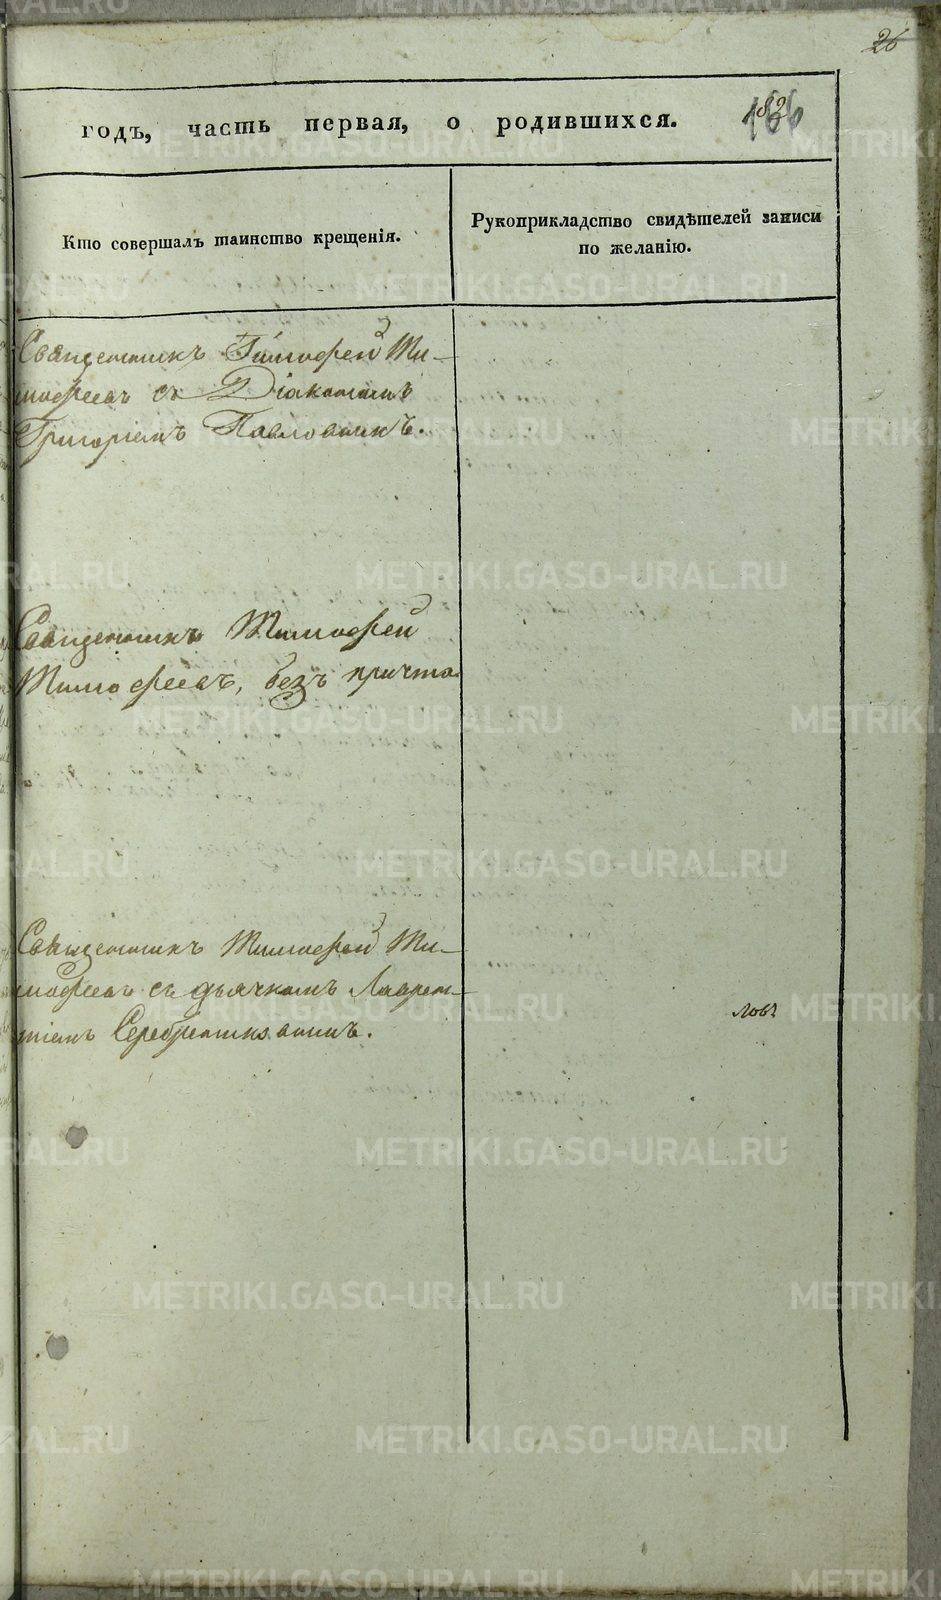 26
годъ, часть первая, о родившихся. 166
Кто совершалъ таинство крещенія.
Рукоприкладство свидѣтелей записи
по желанію.
Священникъ Тимофей Ти-
мофеевъ съ Діакономъ
Григоріемъ Павловымъ.
Священникъ Тимофей
Тимофеевъ, безъ причта
Священникъ Тимофей Ти-
мофеевъ съ дьячкомъ Лаврен-
тіемъ Серебрениковымъ.
ловъ
METRIKI.GASO-URAL.RU